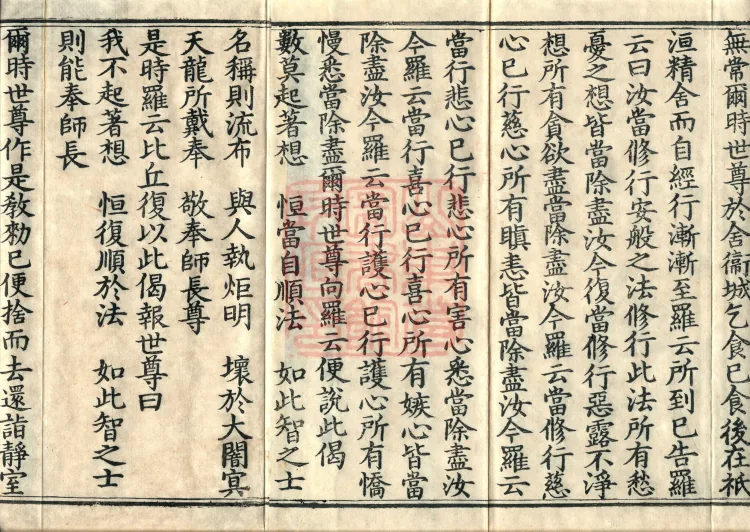 無常爾時世尊於舍衞城乞食已食後在祇
洹精舍而自經行漸漸至羅云所到已告羅
云曰汝當修行安般之法修行此法所有愁
憂之想皆當除盡汝今復當修行惡露不淨
想所有貪欲盡當除盡汝今羅云當修行慈
心已行慈心所有瞋恚皆當除盡汝今羅云
當行悲心已行悲心所有害心悉當除盡汝
今羅云當行喜心已行喜心所有嫉心皆當
除盡汝今羅云當行護心已行護心所有憍
慢悉當除盡爾時世尊向羅云便說此偈
數莫起著想　恒當自順法　如此智之士
名稱則流布　與人執炬明　壞於大闇冥
天龍所戴奉　敬奉師長尊
是時羅云比丘復以此偈報世尊曰
我不起著想　恒復順於法　如此智之士
則能奉師長
爾時世尊作是教勑已便捨而去還詣靜室